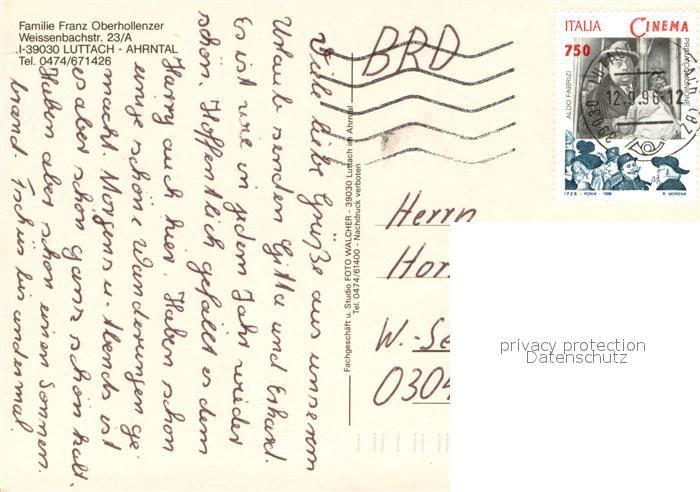 Familie Franz Oberhollenzer
Weissenbachstr. 23/A
I-39030 LUTTACH - AHRNTAL
Tel. 0474/671426
Viele liebe Grüße aus unserem
Urlaub senden Gitta und Erhard.
Es ist wie in jedem Jahr wieder
schön. Hoffentlich gefällt es dem
Harry auch hier. Haben schon
einige schöne Wanderungen ge
macht. Morgens u. Abends ist
es aber schon ganz schön kalt.
Haben aber schon einen Sonnen
brand. Tschüs bis andermal.
Fachgeschäft u. Studio FOTO WALCHER - 39030 Luttach im Ahrntal
Tel. 0474/61400 - Nachdruck verboten
BRD
ITALIA CINEMA
750
ALDO FABRIZI
PRIMA COMUNIONE
12.9.96-12
39030
I.P.Z.S. - ROMA - 1996
R. MORENA
Herrn
Hor
W.-Se
0304
privacy protection
Datenschutz